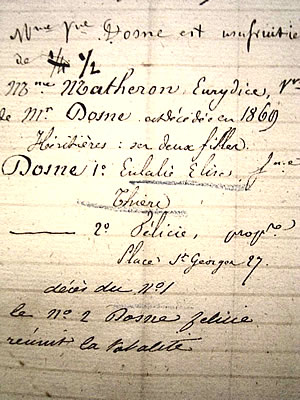 Mme Vve Dosne est usufruitie
de 1/2
Mme Matheron, Eurydice, Vve
de Mr Dosne est décédée en 1869
Héritières : ses deux filles.
Dosne 1º Eulalie Elise, fme
Thiers
—— 2º Félicie, propre
Place St Georges 27.
décès du Nº 1
le nº 2 Dosne felicie
réunit la totalité